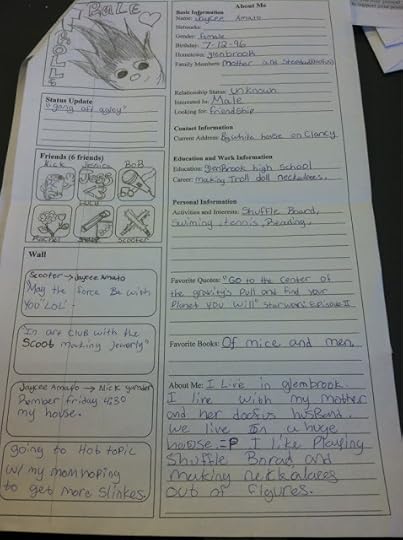 TROLL
PALE
Status Update
"going off aglay"
Friends (6 friends)
Rick Jessica BoB
Rachel Scooter
Wall
Scooter → Jaycee Amato
May the force Be with
you "LOL".
In art club with the
Scoob making Jewerly"
Jaycee Amato → Nick
Rember friday 4:30
my house.
going to Hot topic
w/ my mom hoping
to get more Slinkes.
About Me
Basic Information
Name: Jaycee Amato
Networks:
Gender: female
Birthday: 7-12-96
Hometown: glenbrook
Family Members: Mother and
Relationship Status: unknown
Interested In: Male
Looking for: friendship
Contact Information
Current Address: Big white house on Clancy
Education and Work Information
Education: Glenbrook high school
Career: making Troll doll necklaces.
Personal Information
Activities and Interests: Shuffle Board,
Swiming, tennis,
Favorite Quotes: "Go to the center of
the gravity's Pull and find your
Planet you will" star wars Episode II
Favorite Books: Of mice and men
About Me: I Live in glembrook.
I live with my mother
and her doofus husband.
we live in a huge
house =P I like Playing
Shuffle Borad and
making neckalaces
out of figures.